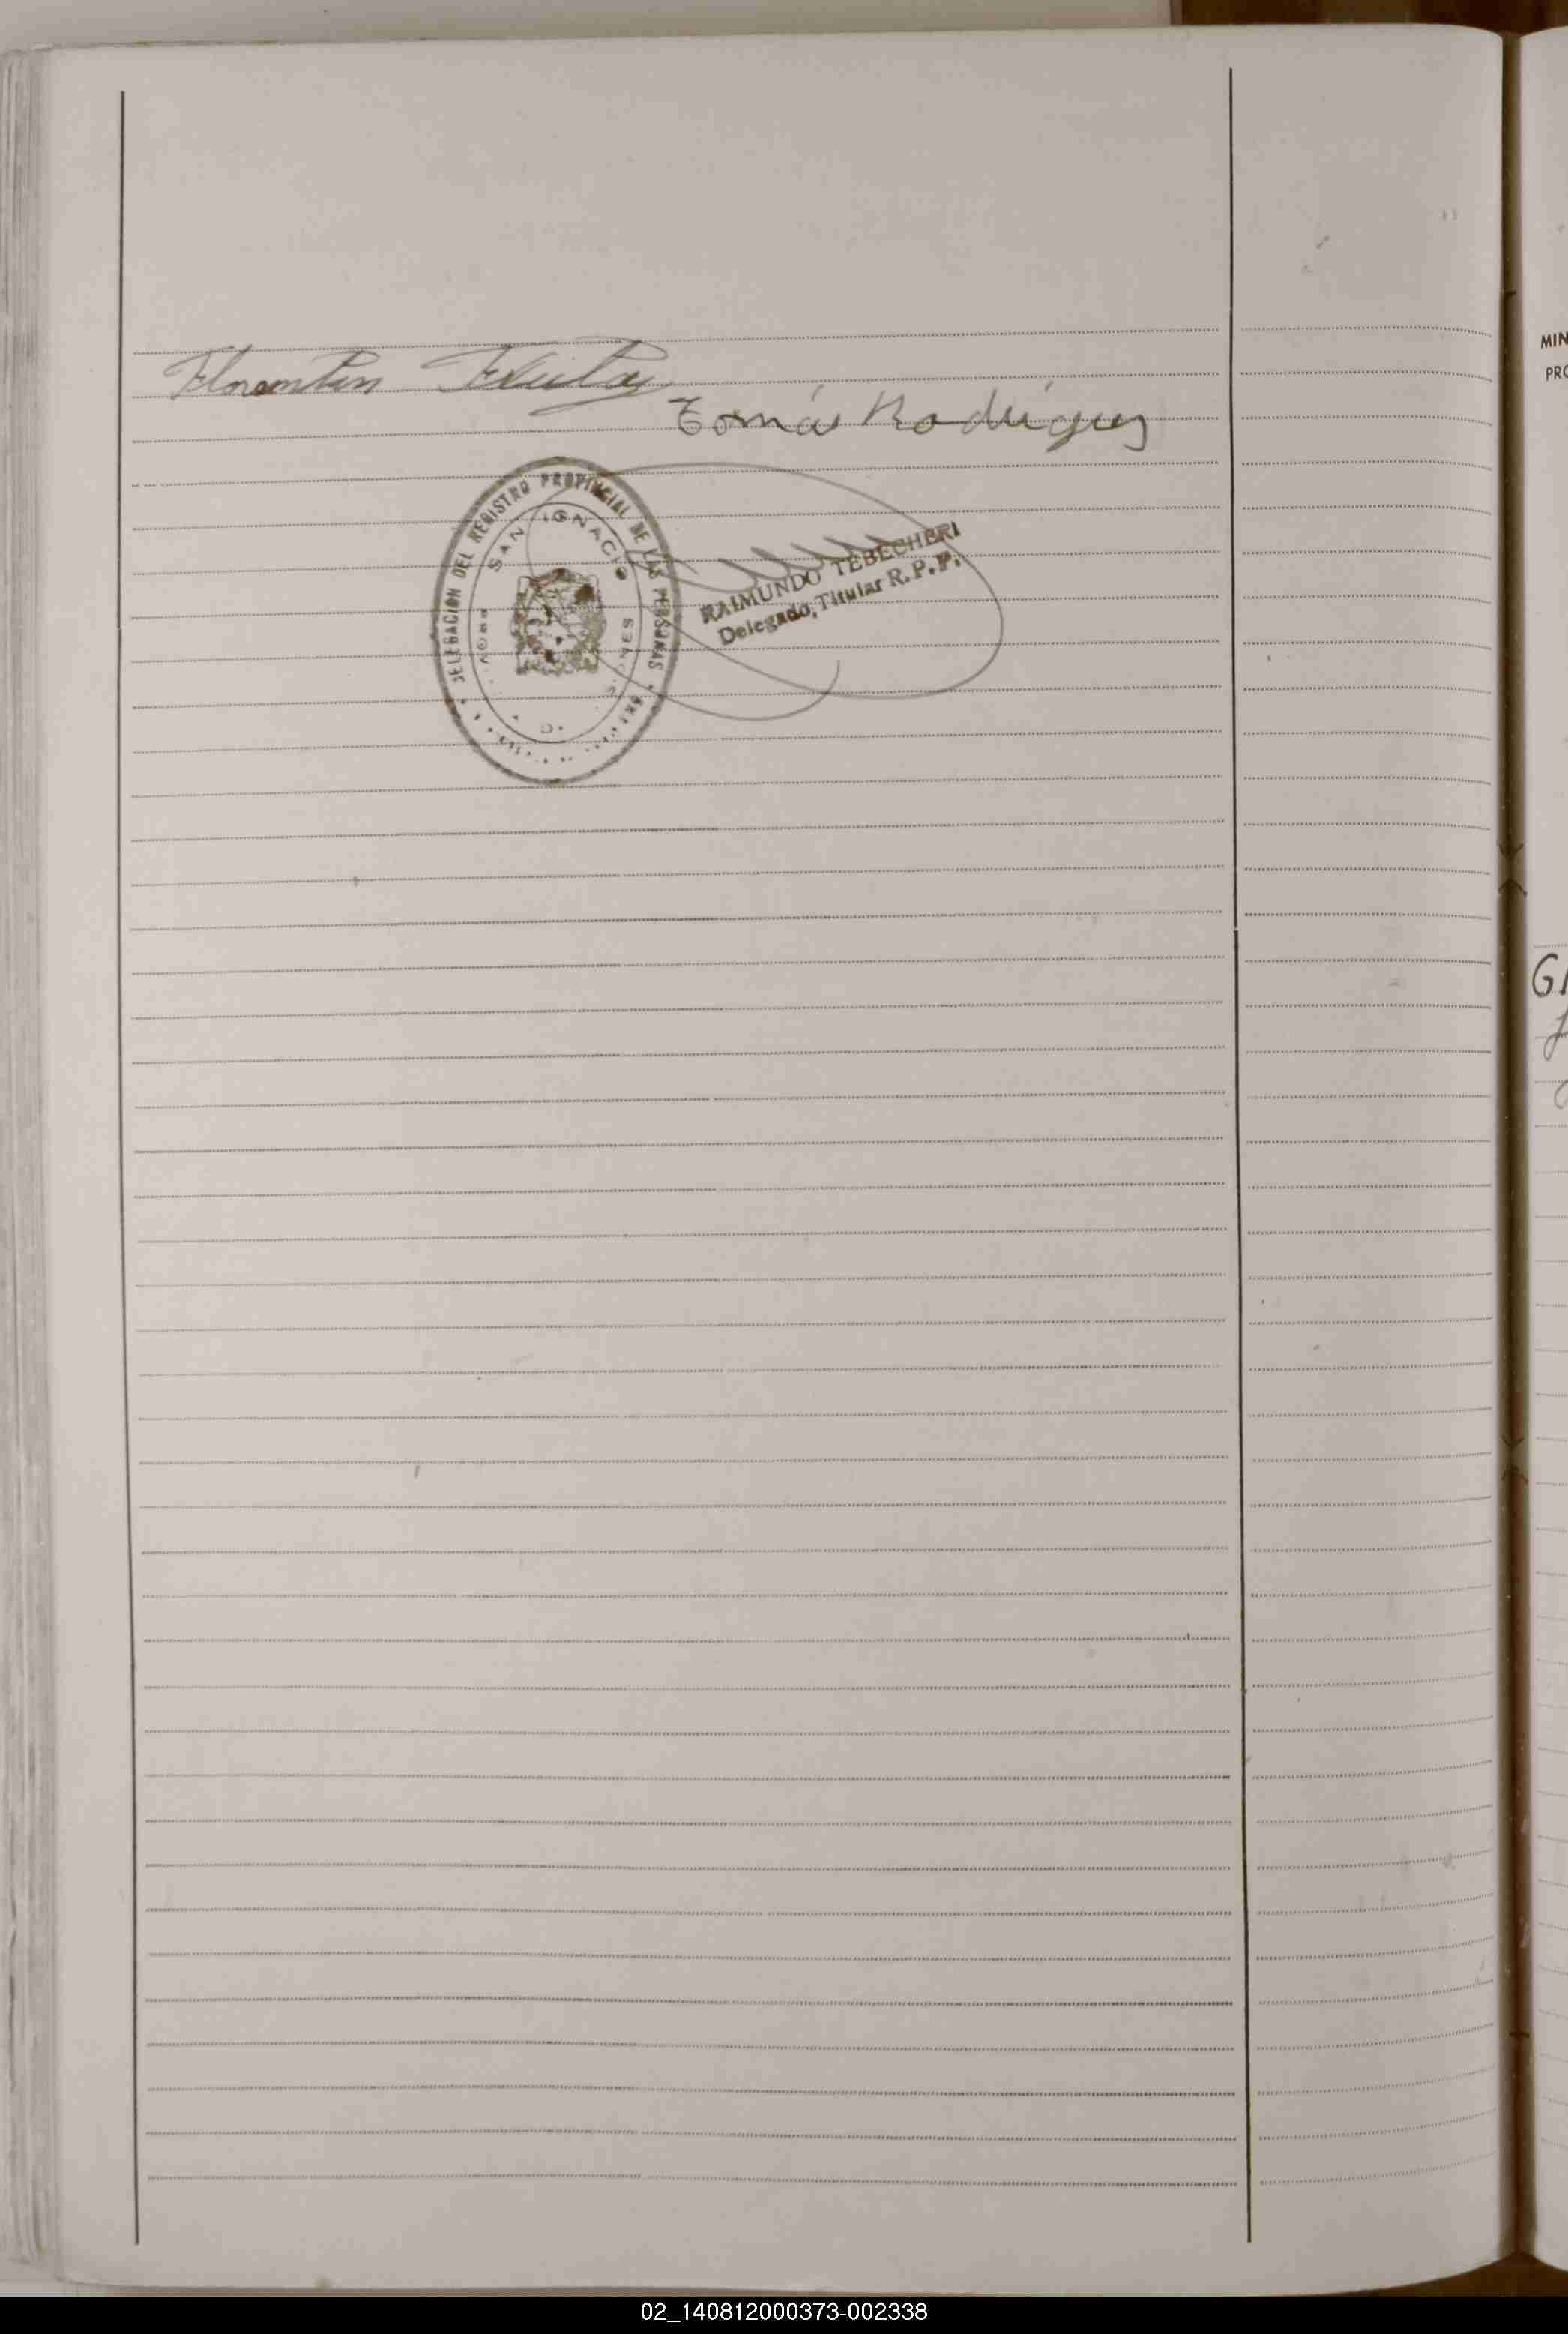 Florentin
Tomás Rodriguez
DELEGACIÓN DEL REGISTRO PROVINCIAL DE LAS PERSONAS
SAN IGNACIO
RAIMUNDO TEBECHERI
Delegado, Titular R.P.P.
MIN
PRO
GI
02_140812000373-002338